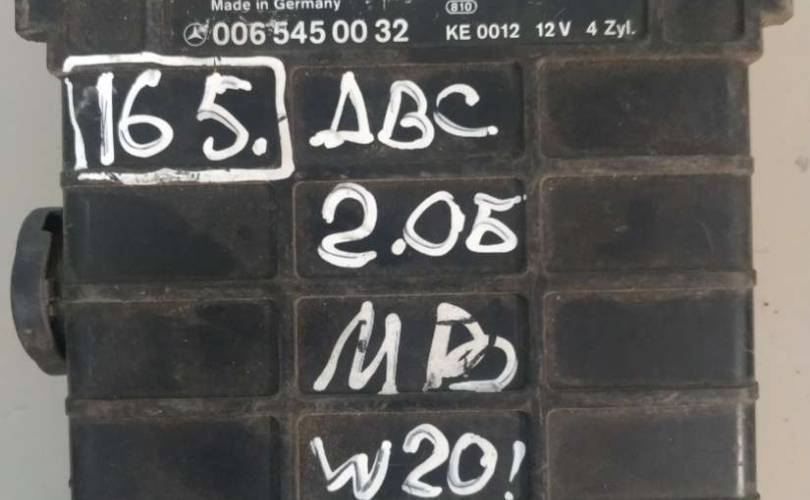 Made in Germany 810
006 545 00 32 KE 0012 12 V 4 Zyl.
165. ДВС
2.0Б
W20!